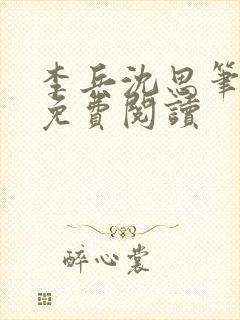 李兵沈思筆
免費閱讀
醉心裳